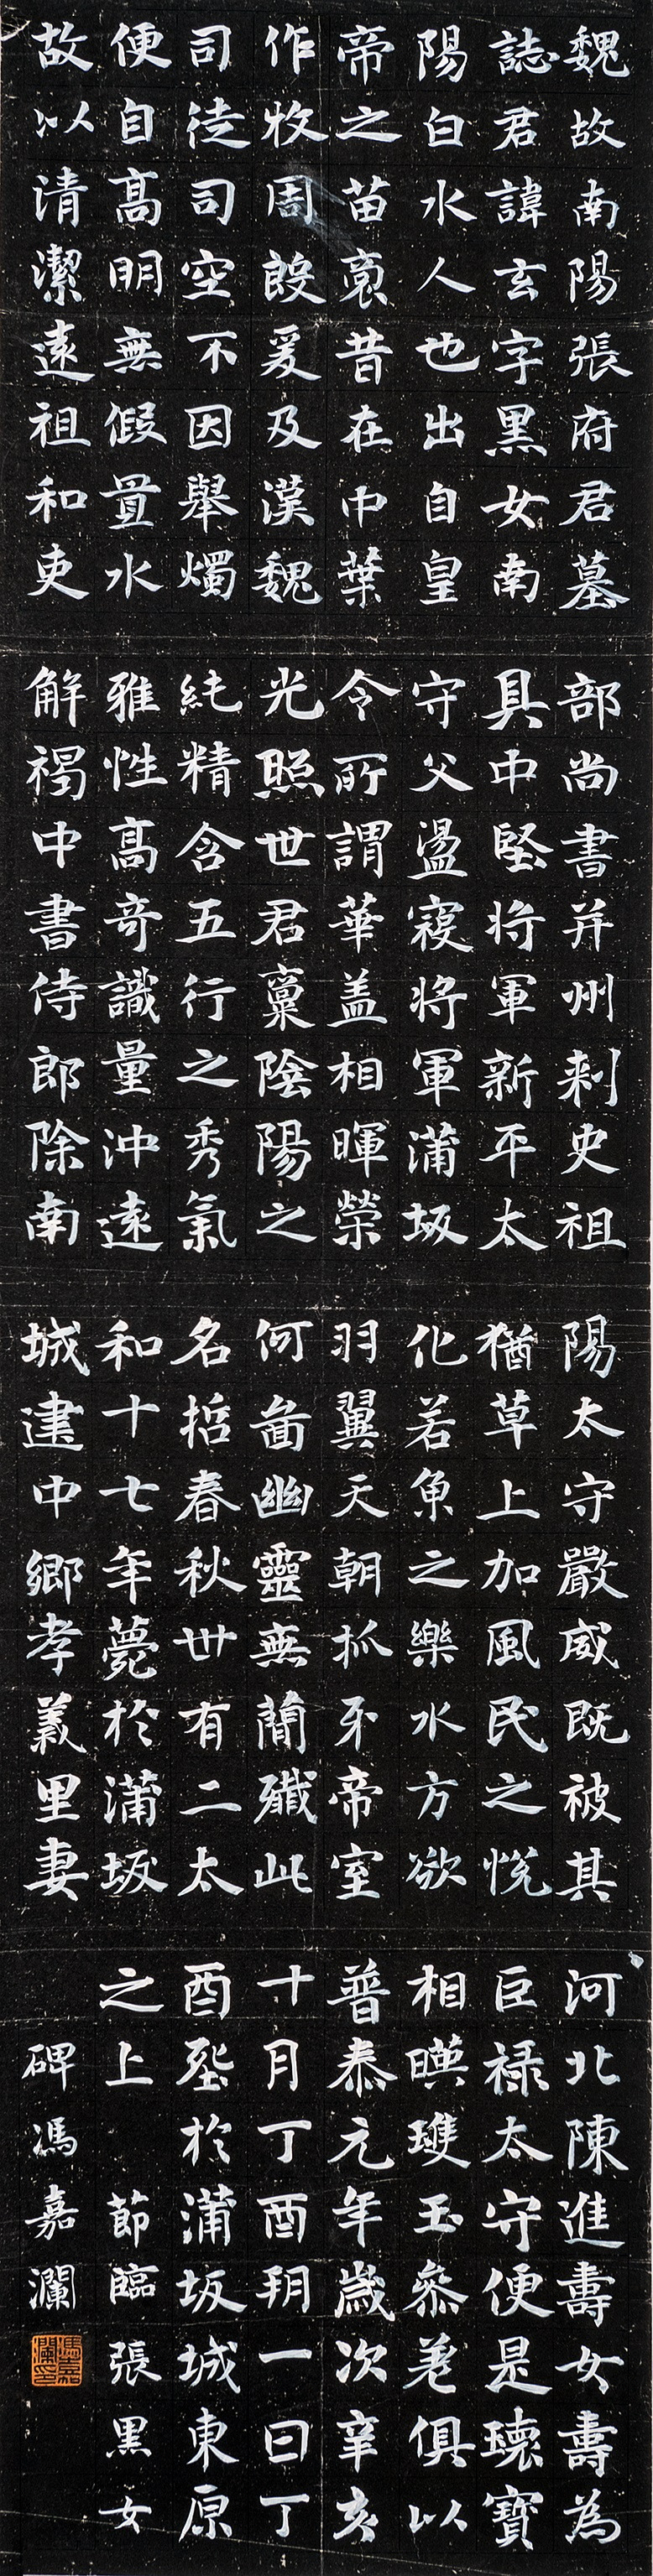 魏故南陽張府君墓
誌君諱玄字黑女南
陽白水人也出自皇
帝之苗裔昔在中葉
作牧周殷爰及漢魏
司徒司空不因舉燭
便自高明無假置水
故以清潔遠祖和吏
部尚書并州刺史祖
具中堅將軍新平太
守父盪寇將軍蒲坂
令所謂華盖相暉榮
光照世君稟陰陽之
純精含五行之秀氣
雅性高奇識量沖遠
解褐中書侍郎除南
陽太守嚴威既被其
猶草上加風民之悅
化若魚之樂水方欲
羽翼天朝抓牙帝室
何啚幽靈無簡殲此
名哲春秋卅有二太
和十七年薨於蒲坂
城建中鄉孝義里妻
河北陳進壽女壽為
巨祿太守便是瓌寶
相暎瓊玉參差俱以
普泰元年歲次辛亥
十月丁酉朔一日丁
酉塟於蒲坂城東原
之上 節臨張黑女
碑馮嘉瀾